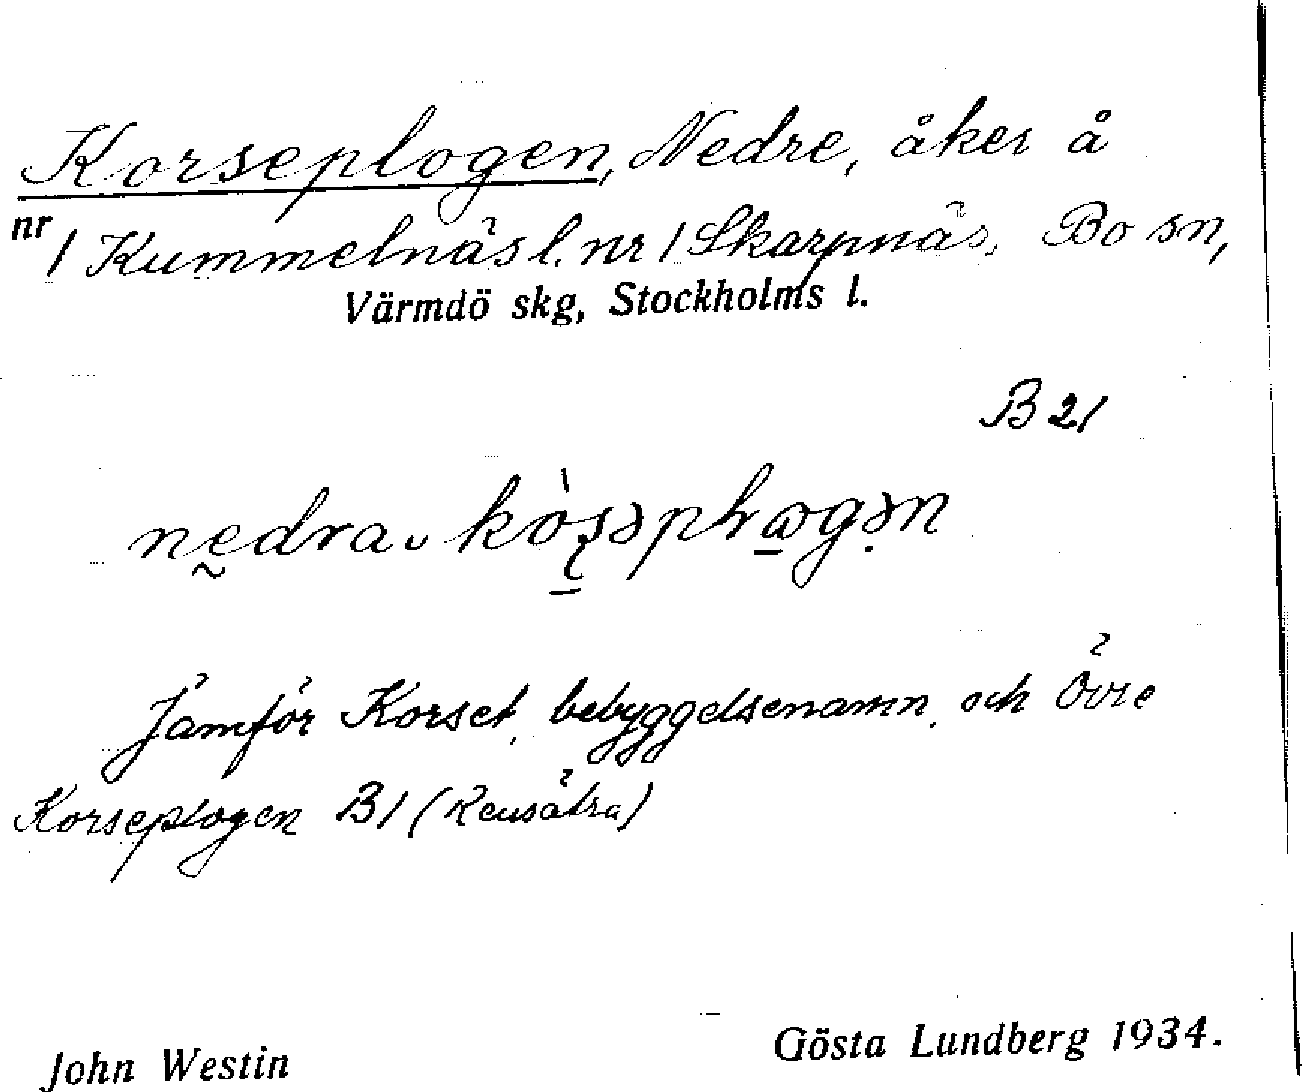 Korseplogen, Nedre, åker å
nr 1 Kummelnäs l. nr 1 Skarpnäs, Bo sn,
Värmdö skg, Stockholms l.
B 21
Jämför Korset, bebyggelsenamn, och Övre
Korseplogen B1 (Rensätra)
John Westin
Gösta Lundberg 1934.